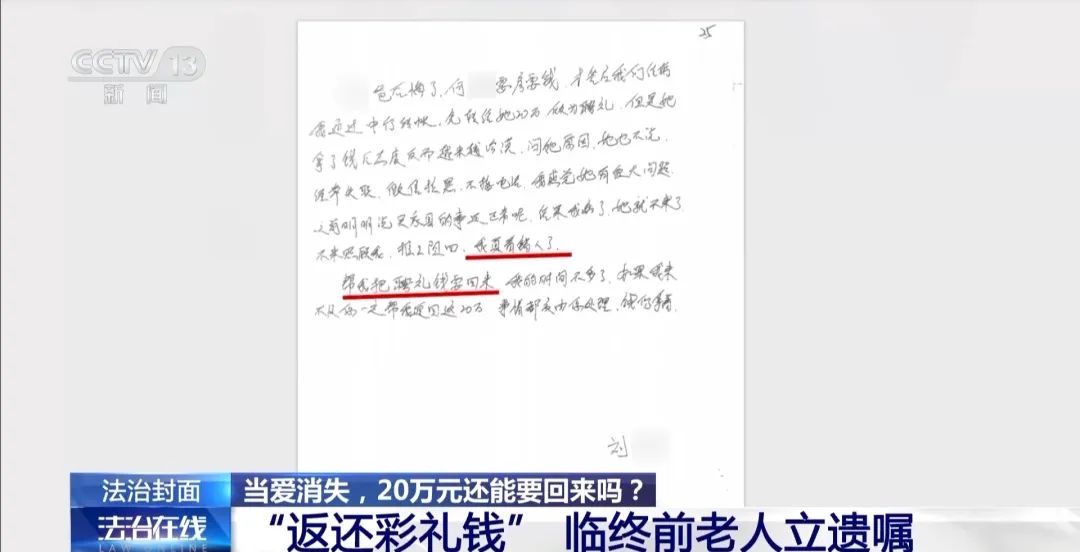 CCTV 13
新闻
25
了,何 要房要钱,
我通过中行转帐,先转给她20万做为聘礼,但是她
拿了钱后态度反而越来越冷淡,问她原因,她也不说,
经常失联,微信拉黑,不接电话,我感觉她有很大问题.
之前明明说买家园的事还正常呢,结果我病了,她就不来了
不来照顾我,推三阻四,我真看错人了.
帮我把聘礼钱要回来 我的时间不多了,如果我来
不及你一定帮我要回这20万 事情都交由你处理,
刘
法治封面
当爱消失,20万元还能要回来吗?
法治在线
LAW ONLINE
“返还彩礼钱” 临终前老人立遗嘱